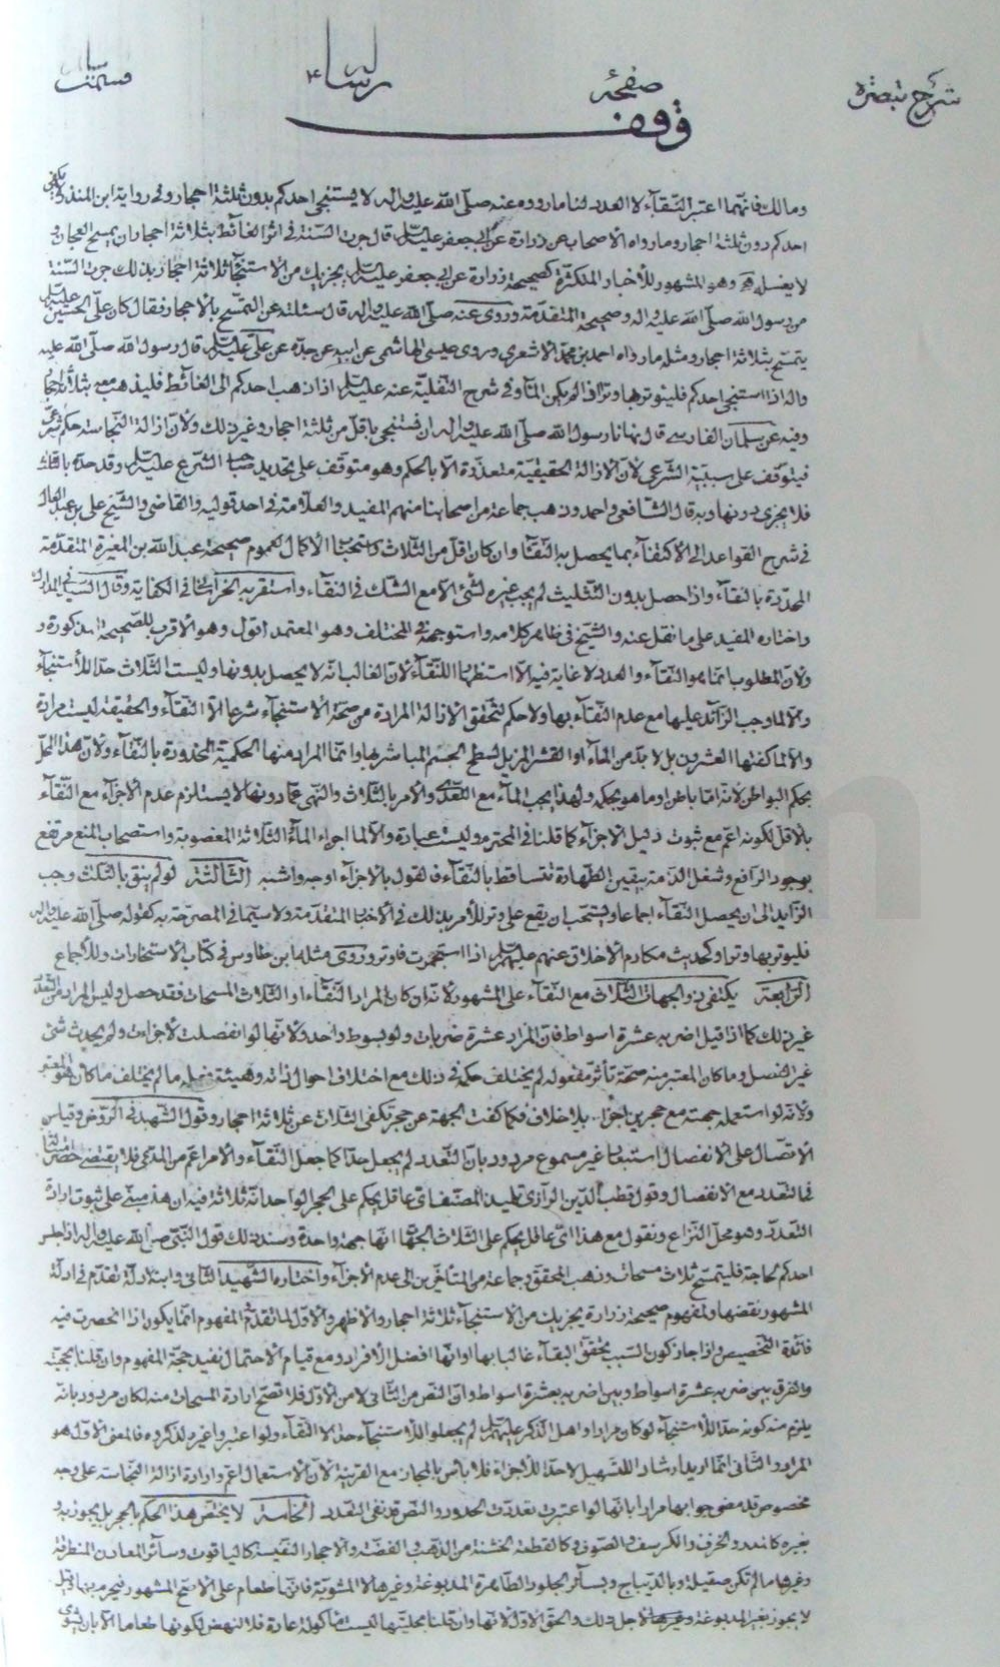 شرح تبصرة
صفحة
رسالة ۴
وقف
ومالك فانهما اعتبرا النقاء لا العدد لنا ما رووه عنه صلى الله عليه واله لا يستنجى احدكم بدون ثلثة احجار وفى رواية ابن المنذر لا يكفى
احدكم دون ثلثة احجار وما رواه الاصحاب عن زرارة عن ابيجعفر عليه السلام قال جرت السنة فى اثر الغائط بثلاثة احجار ان يمسح العجان و
لا يغسله وهو المشهور للأخبار المتكثرة كصحيحة زرارة عن ابى جعفر عليه السلام يجزيك من الاستنجاء ثلاثة احجار بذلك جرت السنة
من رسول الله صلى الله عليه واله وصحيحة المتقدمة وروى عنه صلى الله عليه واله قال سئلته عن التمسح بالاحجار فقال كان على الحسين عليه السلام
يتمسح بثلاثة احجار ومثله ما رواه احمد بن محمد الاشعري وروى عيسى الهاشمى عن ابيه عن جده عن على عليه السلام قال رسول الله صلى الله عليه
واله اذا استنجى احدكم فليوتر بها وترا اذا لم يكن الماء وفى شرح النفلية عنه عليه السلام اذا ذهب احدكم الى الغائط فليذهب معه بثلاثة احجار
وفيه عن سلمان الفارسى قال نهانا رسول الله صلى الله عليه واله ان نستنجى باقل من ثلثة احجار وغير ذلك ولان ازالة النجاسة حكم شرعى
فيتوقف على سببية الشرعى لان الازالة الحقيقية متعذرة الا بالحكم وهو متوقف على تحديد صاحب الشرع عليه السلام وقد حده بالثلث
فلا يجزى دونها وبه قال الشافعى واحمد وذهب جماعة من اصحابنا منهم المفيد والعلامة فى احد قوليه والقاضى والشيخ على بن عبد العال
فى شرح القواعد الى الاكتفاء بما يحصل به النقاء وان كان اقل من الثلاث واستحباب الاكمال لعموم صحيحة عبد الله بن المغيرة المتقدمة
المحددة بالنقاء واذا حصل بدون التثليث لم يجب غيره لشئ الا مع الشك فى النقاء واستقربه الخراسانى فى الكفاية وقال السيد فى المدارك
واختاره المفيد على ما نقل عنه والشيخ فى ظاهر كلامه واستوجهه فى المختلف وهو المعتمد اقول وهو الاقرب للصحيحة المذكورة و
ولان المطلوب انما هو النقاء والعدد لا غاية فيه الا استظهارا للنقاء لان الغالب انه لا يحصل بدونها وليست الثلاث حدا للاستنجاء
والا لما وجب الزائد عليها مع عدم النقاء بها ولا حكم لتحقق الازالة المرادة من صحة الاستنجاء شرعا الا النقاء والحقيقة ليست مرادة
والا لما كفتها العشرون بل لا بد من الماء او القشر المزيل لسطح الجسم المباشر بها وانما المراد منها الحكمية المحدودة بالنقاء ولان هذا المحل
بحكم البواطن لانه اما باطن او ما هو بحكمه ولهذا يجب الماء مع التعدى والامر بالثلاث والنهى عما دونها لا يستلزم عدم الاجزاء مع النقاء
بالاقل لكونه اعم مع ثبوت دليل الاجزاء كما قلنا فى المحترم وليست عبادة والا لما اجزاء الماء الثلاثة المغصوبة واستصحاب المنع مرتفع
بوجود الرافع وشغل الذمة بيقين الطهارة تتساقط بالنقاء فالقول بالاجزاء اوجه واشبه الثالثة لو لم ينق بالثلث وجب
الزايد الى ان يحصل النقاء اجماعا ويستحب ان يقع على وتر للامر بذلك فى الأخبار المتقدمة ولا سيما فى المصرحة به كقوله صلى الله عليه واله
فليوتر بها وترا وكحديث مكارم الاخلاق عنهم عليهم السلام اذا استجمرت فاوتر وروى مثله ابن طاوس فى كتاب الاستخارات وللأجماع
الرابعة يكتفى ذو الجهات الثلاث مع النقاء على المشهور لانه ان كان المراد النقاء او الثلاث المسحات فقد حصل وليس المراد من التعدد
غير ذلك كما اذا قيل اضربه عشرة اسواط فان المراد عشرة ضربات ولو بسوط واحد ولانها لو انفصلت لاجزات ولم يحدث شئ
غير الفصل وما كان المعتبر منه صحة تأثر مفعوله لم يختلف حكمه فى ذلك مع اختلاف احوال ذاته وهيئة فعله ما لم يختلف ما كان هو المعتبر
ولانه لو استعمله جهته مع حجرين اجزاء بلا خلاف فكما كفت الجهة عن حجر تكفى الثلاث عن ثلاثة احجار وقول الشهيد فى الروض وقياس
الاتصال على الانفصال استبعادا غير مسموع مردود بان التعدد لم يجعل حدا كما جعل النقاء والأمر اعم من المدعى فلا يقتضى حصر الامتثال
فى التعدد مع الانفصال وقول قطب الدين الرازى تلميذ المصنف اى عاقل يحكم على الحجر الواحد انه ثلاثة فيه ان هذا مبنى على ثبوت ارادة
التعدد وهو محل النزاع ونقول مع هذا اى عاقل يحكم على الثلاث الجهات انها جهة واحدة وسند ذلك قول النبى صلى الله عليه واله اذا جلس
احدكم لحاجة فليتمسح ثلاث مسحات وذهب المحقق وجماعة من المتأخرين الى عدم الاجزاء واختاره الشهيد الثانى وابتلا دلة تقدم فى ادلة
المشهور نقضها ولمفهوم صحيحة زرارة يجزيك من الاستنجاء ثلاثة احجار والاظهر الاول لما تقدم المفهوم انما يكون اذا انحصرت فيه
فائدة التخصيص واذا جاز كون السبب تحقق النقاء غالبا بها او انها افضل الافراد ومع قيام الاحتمال نفيد حجة المفهوم وان قلنا بحجيته
والفرق بين ضربه عشرة اسواط وبين اضربه بعشرة اسواط وان النص من الثانى لا من الاول فلا تصح ارادة المسحات منه لكان مردود بانه
يلزم منه كونه حدا للاستنجاء لو كان مرادا واهل الذكر عليهم السلام لم يجعلوا للاستنجاء حدا الا النقاء ولو اعتبروا غيره لذكروه فالمعنى الاول هو
المراد والثانى انما اريد ارشادا للتسهيل لا حدا للاجزاء فلا باس بالمجاز مع القرينة لان الاستعمال اعم وارادة ازالة النجاسة على وجه
مخصوص قد مضى جوابها مرارا بانها لو اعتبرت تعددت الحدود والنص قد نفى التعدد الخامسة لا يختص هذا الحكم بالحجر بل يجوز به و
بغيره كالمدر والخزف والكرسف والصوف وكالقطعة الخشنة من الذهب والفضة والاحجار النفيسة كالياقوت وسائر المعادن المنطرقة
وغيرها ما لم تكن صقيلة وبالديباج وبسائر الجلود الطاهرة المدبوغة وغيرها لا المشوية فانها طعام على الاصح المشهور فيحرم بها وقيل
لا يجوز بغير المدبوغة لاجل ذلك والحق الاول لانها وان قلنا بحليتها ليست مأكولة عادة فلا تنهض لكونها طعاما الا بان تشوى